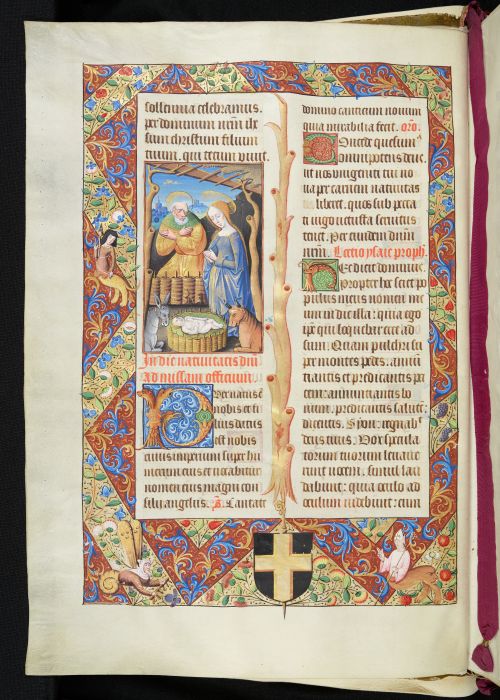 sollennia celebramus.
per dominum nrm ihe
sum christum filium
tuum. qui tecum vivit.
In die nativitatis dni
Ad missam officium.
Puer natus e
nobis et fi
lius datus
est nobis
cuius imperium super hu
merum eius et vocabitur
nomen eius magni con
silii angelus. ps. Cantate
domino canticum novum
quia mirabilia fecit. oro.
Concede quesum
omnipotens deus
ut nos unigeniti tui no
va per carnem nativitas
liberet. quos sub pecca
ti iugo vetusta servitus
tenet. Per eundem dnm
nrm. Lectio ysaie proph.
Hec dicit dominus.
Propter hoc sciet po
pulus meus nomen me
um in die illa: quia ego
ipse qui loquebar ecce ad
sum. Quam pulchri su
per montes pedes. annun
tiantis et predicantis pa
cem: annuntiantis bo
num. predicantis salute:
dicentis. syon: regnab
deus tuus. Vox specula
torum tuorum levave
runt vocem. simul lau
dabunt: quia oculo ad
oculum videbunt: cum